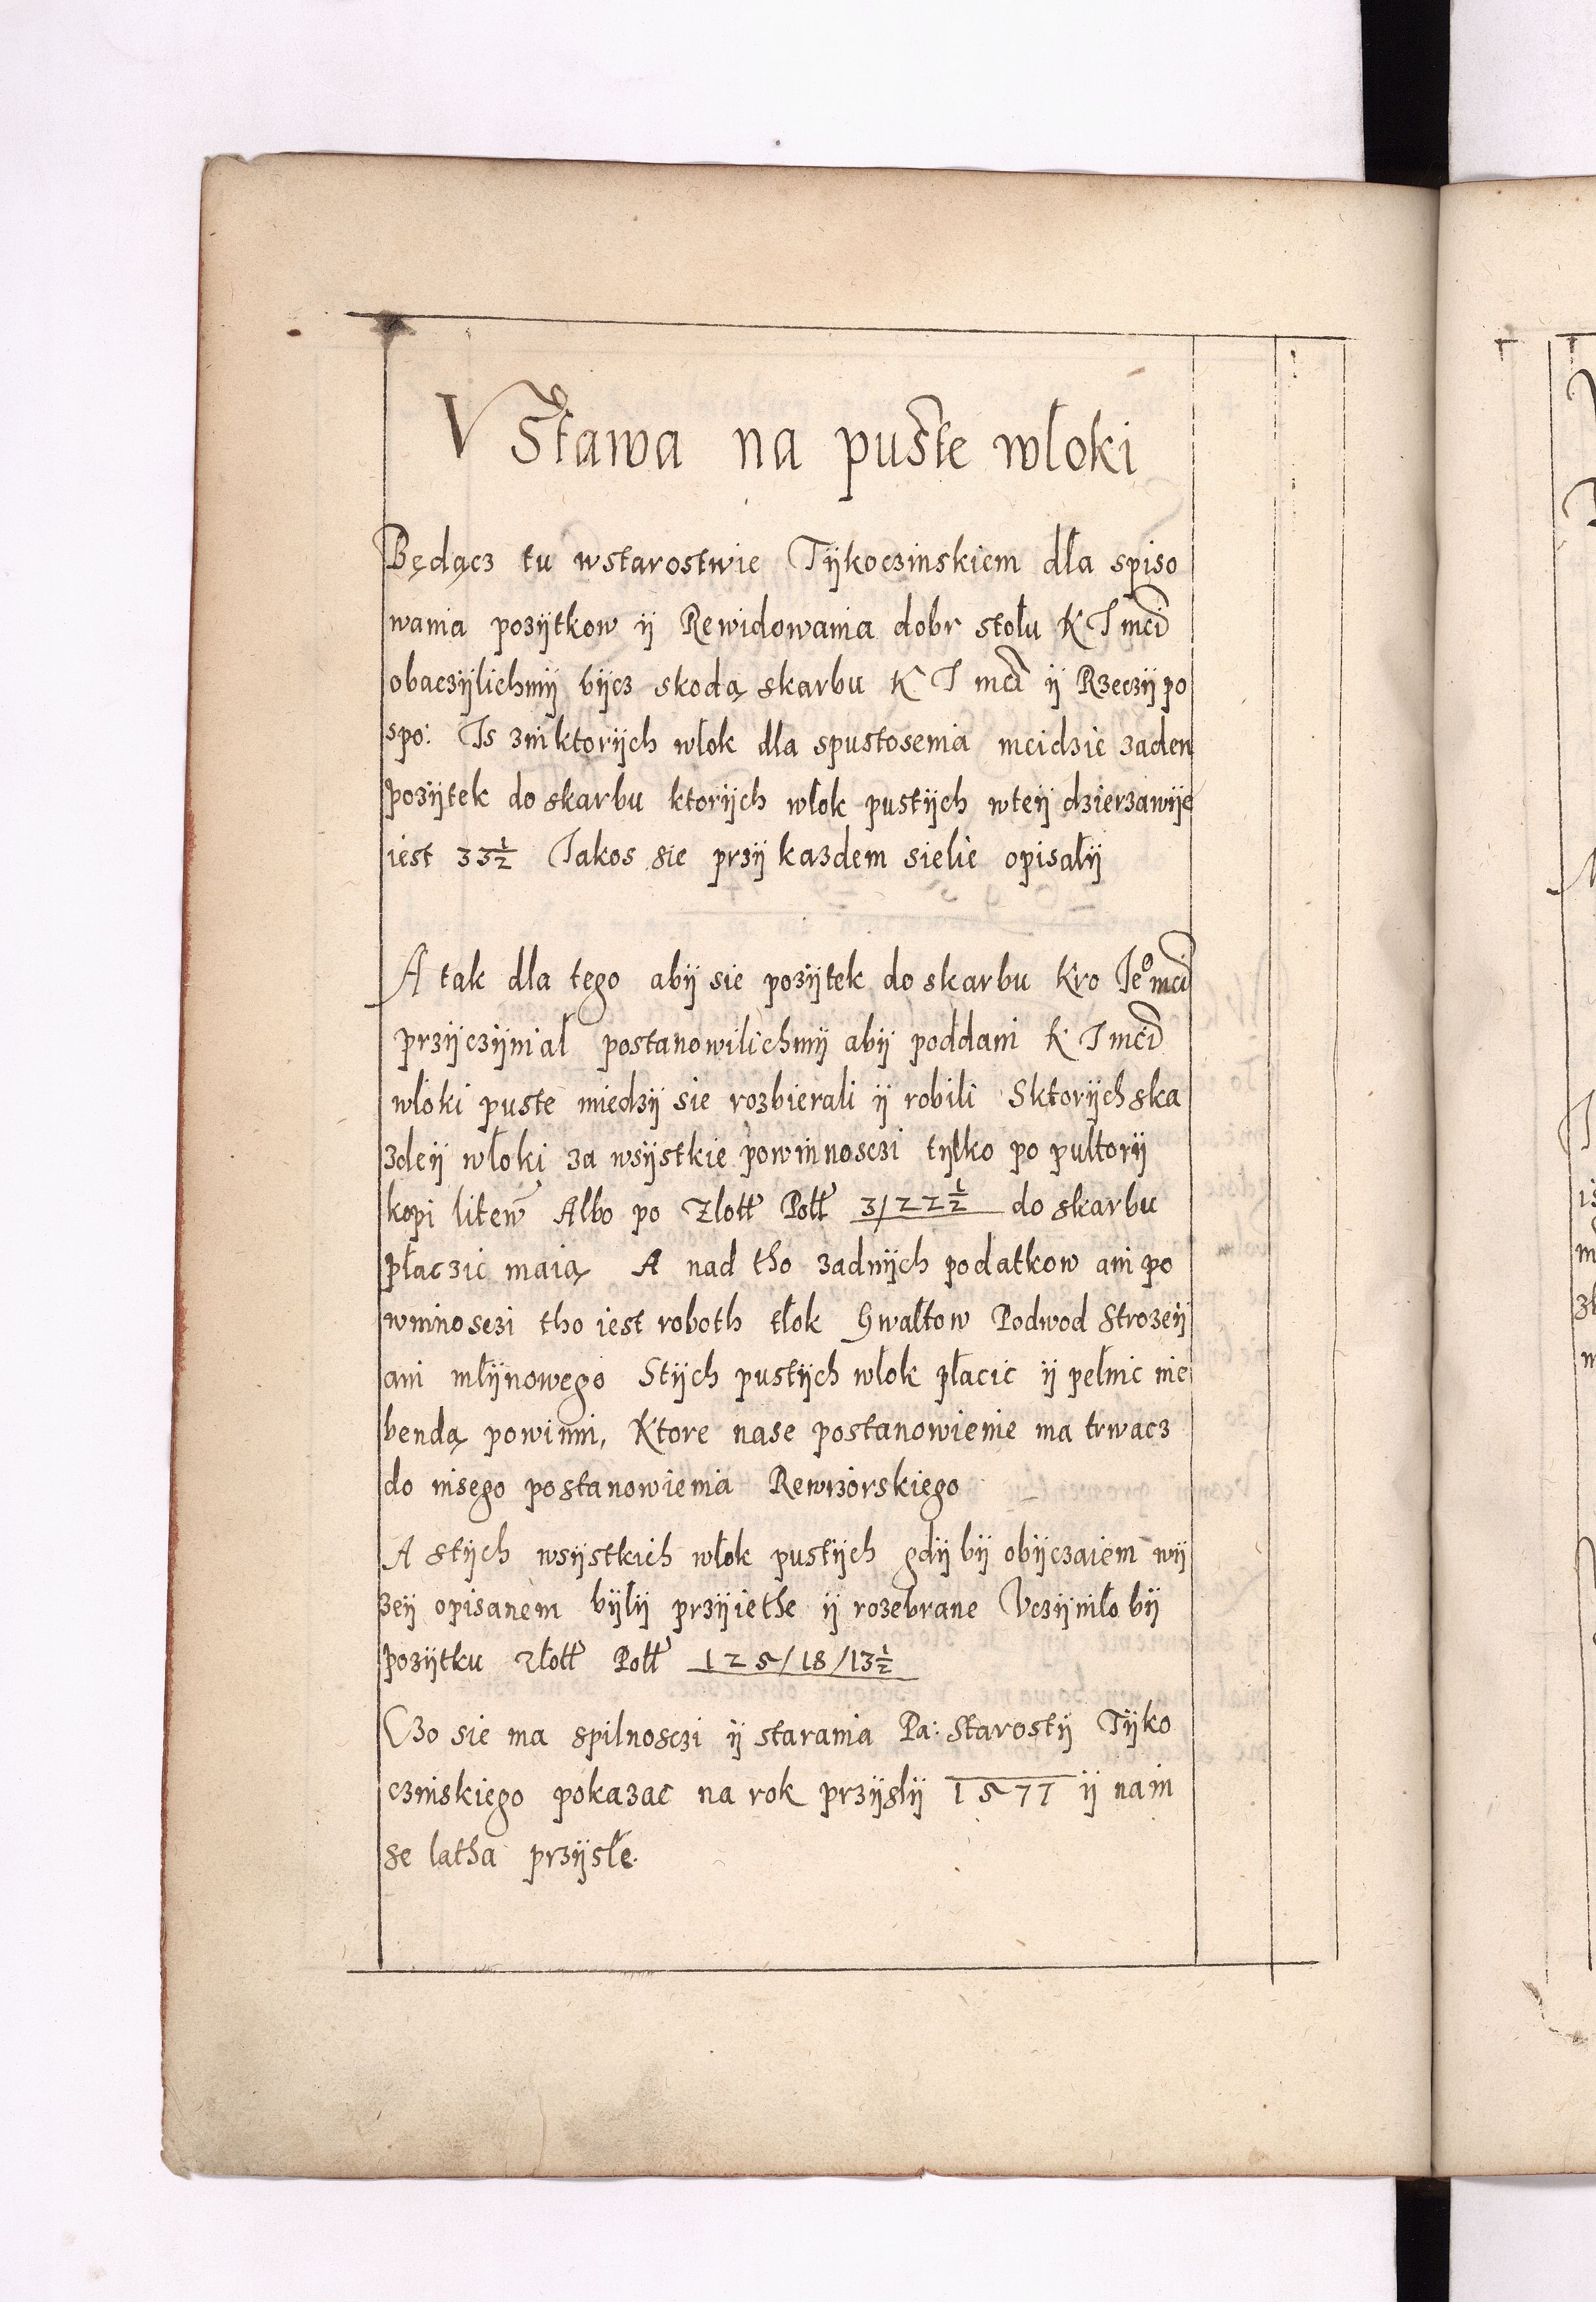 Vstawa na puste wloki
Będącz tu wstarostwie Tÿkoczinskiem dla spiso
wania pozÿtkow ÿ Rewidowania dobr stołu K J mci
obaczÿlichmÿ bÿcz skodą skarbu K J mci ÿ Rzeczÿ po
spo: Is zniktorÿch włok dla spustosenia nieidzie zaden
pozÿtek do skarbu ktorÿch włok pustÿch wteÿ dzierzawÿe
iest 33 1/2 Jakos sie przÿ kazdem sielie opisałÿ
A tak dla tego abÿ sie pozÿtek do skarbu Kro Jeo mci
przÿczÿniał postanowilichmÿ abÿ poddani K J mci
włoki puste miedzÿ sie rozbierali ÿ robili Sktorÿch ska
zdeÿ włoki za wsÿstkie powinnosczi tÿlko po pułtorÿ
kopi litew Albo po Złott Poll 3/22 1/2 do skarbu
płaczić maią A nad tho zadnÿch podatkow ani po
winnosczi tho iest roboth tłok Gwałtow Podwod Strozeÿ
ani młÿnowego Stÿch pustÿch włok płacić ÿ pełnic nie
bendą powinni, Ktore nase postanowienie ma trwacz
do inisego postanowienia Rewizorskiego
A stÿch wsÿstkich włok pustÿch gdÿ bÿ obÿczaiem wÿ
zeÿ opisanem bÿlÿ przÿiethe ÿ rozebrane Vczÿniło bÿ
pozÿtku złott Poll 125/18/13 1/2
Czo sie ma spilnosczi ÿ starania Pa: Starostÿ Tÿko
czinskiego pokazac na rok przÿslÿ 1577 ÿ na in
se latha przÿsłe.